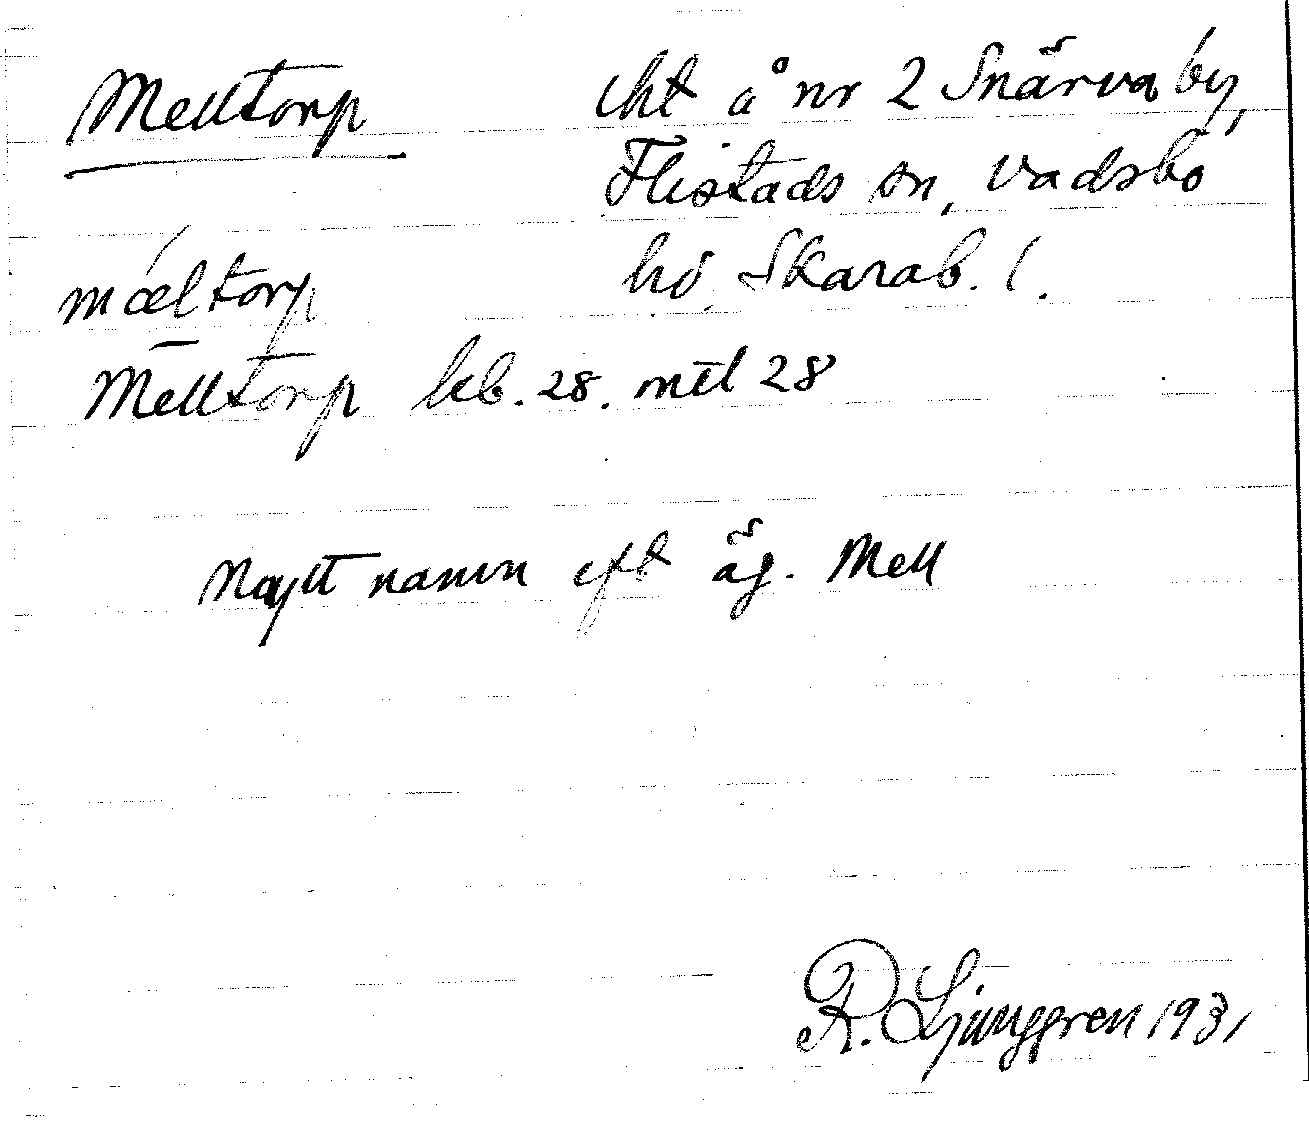 Melltorp
lht å nr 2 Snärva by,
Flistads sn, Vadsbo
hd. Skarab. l.
mæltorp
Melltorp kb. 28. mtl 28
Nytt namn eft äg. Mell
R. Ljunggren 1931